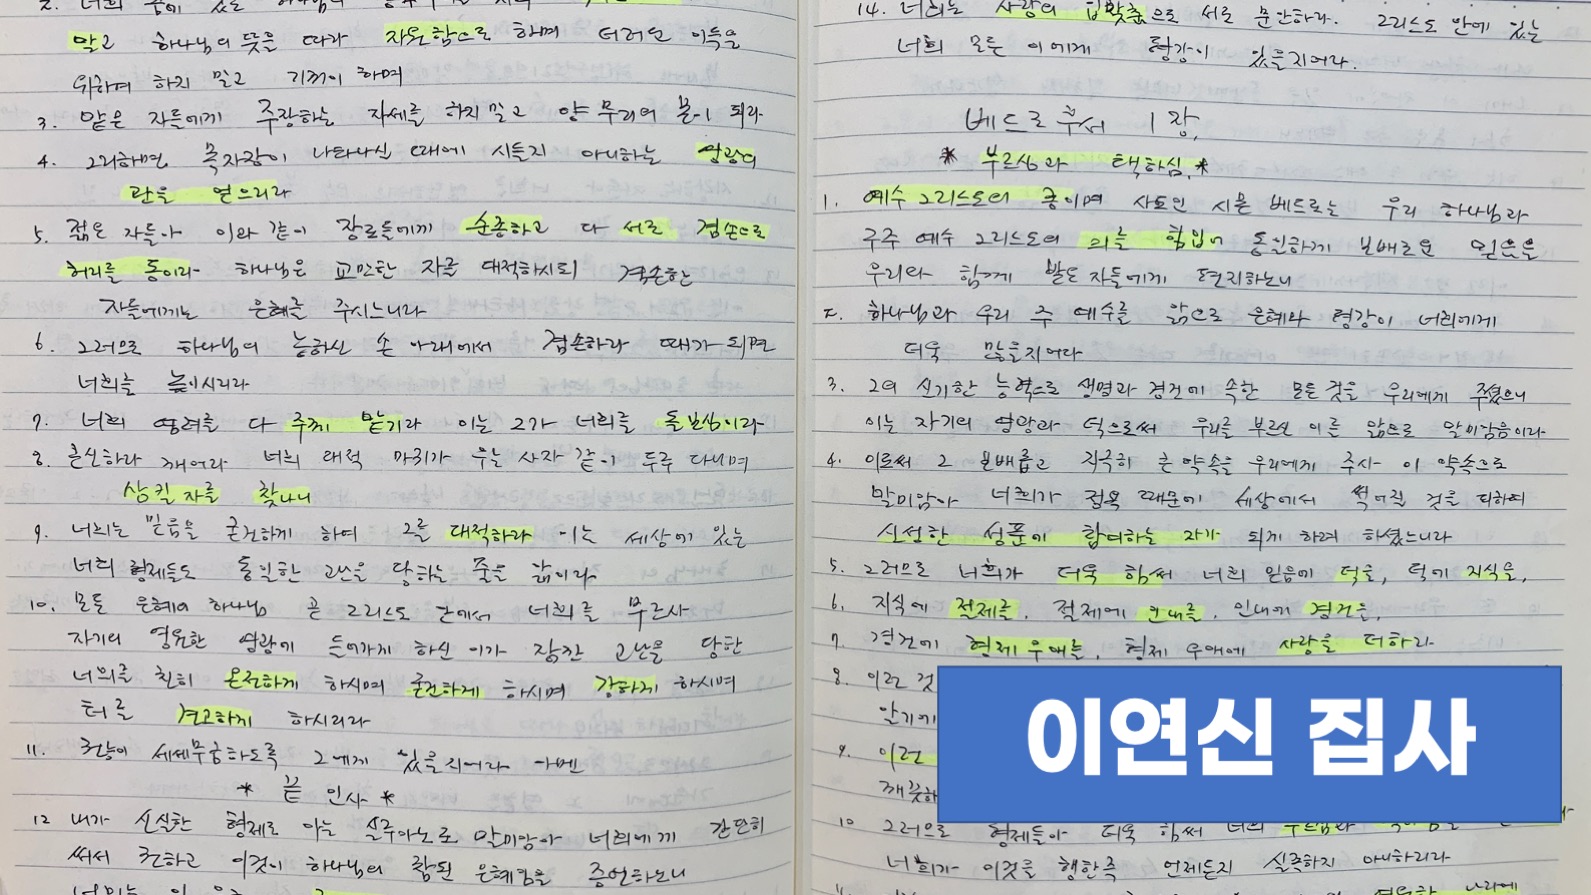 말고 하나님의 뜻을 따라 자원함으로 하며 더러운 이득을
위하여 하지 말고 기꺼이 하며
3. 맡은 자들에게 주장하는 자세를 하지 말고 양 무리의 본이 되라
4. 그리하면 목자장이 나타나실 때에 시들지 아니하는 영광의
관을 얻으리라
5. 젊은 자들아 이와 같이 장로들에게 순종하고 다 서로 겸손으로
허리를 동이라 하나님은 교만한 자를 대적하시되 겸손한
자들에게는 은혜를 주시느니라
6. 그러므로 하나님의 능하신 손 아래에서 겸손하라 때가 되면
너희를 높이시리라
7. 너희 염려를 다 주께 맡기라 이는 그가 너희를 돌보심이라
8. 근신하라 깨어라 너희 대적 마귀가 우는 사자 같이 두루 다니며
삼킬 자를 찾나니
9. 너희는 믿음을 굳건하게 하여 그를 대적하라 이는 세상에 있는
너희 형제들도 동일한 고난을 당하는 줄을 앎이라
10. 모든 은혜의 하나님 곧 그리스도 안에서 너희를 부르사
자기의 영원한 영광에 들어가게 하신 이가 잠깐 고난을 당한
너희를 친히 온전하게 하시며 굳건하게 하시며 강하게 하시며
터를 견고하게 하시리라
11. 권능이 세세무궁하도록 그에게 있을지어다 아멘
* 끝 인사 *
12 내가 신실한 형제로 아는 실루아노로 말미암아 너희에게 간단히
써서 권하고 이것이 하나님의 참된 은혜임을 증언하노니
14. 너희는 사랑의 입맞춤으로 서로 문안하라. 그리스도 안에 있는
너희 모든 이에게 평강이 있을지어다.
베드로후서 1장.
* 부르심과 택하심. *
1. 예수 그리스도의 종이며 사도인 시몬 베드로는 우리 하나님과
구주 예수 그리스도의 의를 힘입어 동일하게 보배로운 믿음을
우리와 함께 받은 자들에게 편지하노니
2. 하나님과 우리 주 예수를 앎으로 은혜와 평강이 너희에게
더욱 많을지어다
3. 그의 신기한 능력으로 생명과 경건에 속한 모든 것을 우리에게 주셨으니
이는 자기의 영광과 덕으로써 우리를 부르신 이를 앎으로 말미암음이라
4. 이로써 그 보배롭고 지극히 큰 약속을 우리에게 주사 이 약속으로
말미암아 너희가 정욕 때문에 세상에서 썩어질 것을 피하여
신성한 성품에 참여하는 자가 되게 하려 하셨느니라
5. 그러므로 너희가 더욱 힘써 너희 믿음에 덕을, 덕에 지식을,
6. 지식에 절제를, 절제에 인내를, 인내에 경건을,
7. 경건에 형제 우애를, 형제 우애에 사랑을 더하라
8. 이런 것
알기에
9. 이런
깨끗하
이연신 집사
10 그러므로 형제들아 더욱 힘써 너희
너희가 이것을 행한즉 언제든지 실족하지 아니하리라